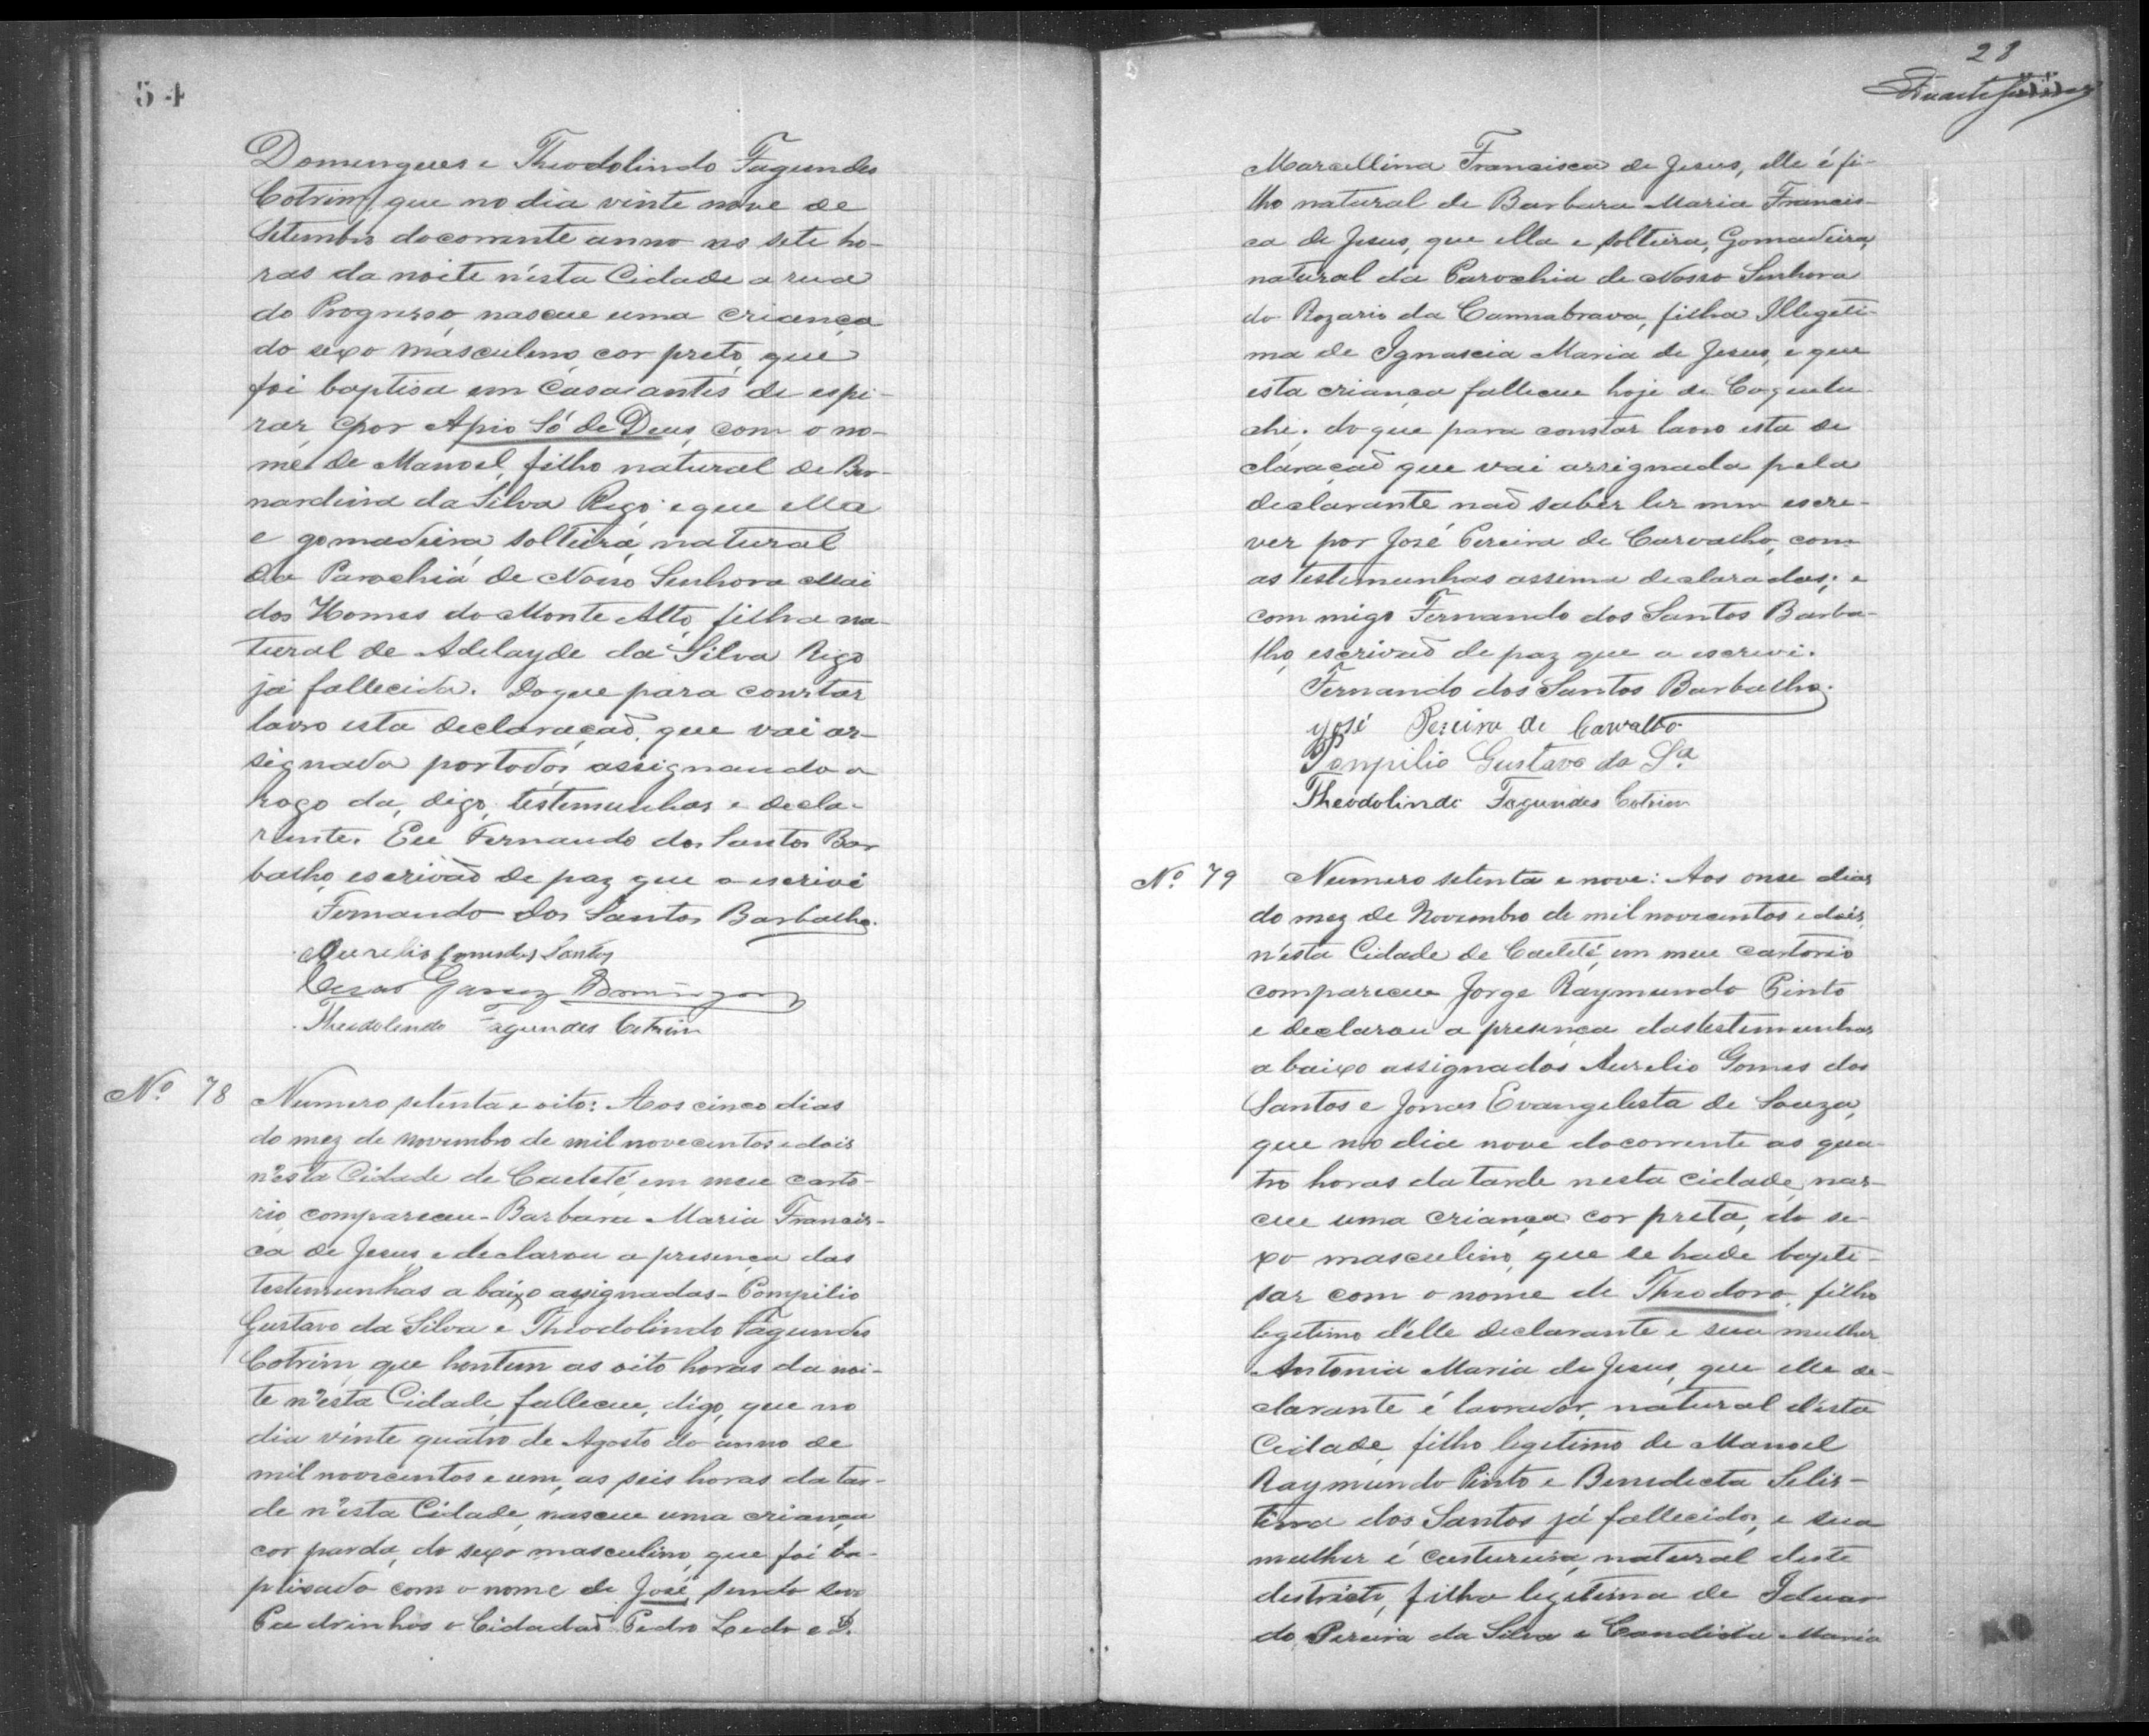 54
Domingues e Theodolindo Fagundes
Cotrim, que no dia vinte nove de
Setembro do corrente anno as sete ho-
ras da noite n'esta Cidade a rua
do Progresso, nasceu uma criança
do sexo masculino, cor preto, que
foi baptisa em Casa antes de espi-
rar, por Apio Só de Deus, com o no-
me de Manoel, filho natural de Ber-
nardina da Silva Rego e que ella
e gomadeira, solteira, natural
da Parochia de Nossa Senhora Mai
dos Homes do Monte Alto, filha na-
tural de Adelayde da Silva Rego
já fallecida. Do que para constar
lavro esta declaração, que vai as-
signada por todos, assignando a
rogo da, digo, testemunhas e decla-
rante. Eu Fernando dos Santos Bar
balho, escrivão de paz que a escrivi
Fernando dos Santos Barbalho.
Aurelio Gomes dos Santos
Cezar Garcez Domingues
Theodolindo Fagundes Cotrim
Nº 78
Numero setenta e oito: Aos cinco dias
do mez de novembro de mil novecentos e dois
n'esta Cidade de Caeteté, em meu carto-
rio compareceu - Barbara Maria Francis-
ca de Jesus, e declarou a presença das
testemunhas a baixo assignadas - Pompilio
Gustavo da Silva e Theodolindo Fagundes
Cotrim, que hontem as oito horas da noi-
te n'esta Cidade, falleceu, digo, que no
dia vinte quatro de Agosto do anno de
mil novecentos e um, as seis horas da tar-
de n'esta Cidade, nasceu uma criança
cor parda, do sexo masculino, que foi ba-
ptisado com o nome de José, sendo seus
Padrinhos o Cidadão Pedro Ledo e D.
28
Marcellina Francisca de Jesus, elle é fi-
lho natural de Barbara Maria Francis-
ca de Jesus, que ella e solteira, Gomadeira,
natural da Parochia de Nossa Senhora
do Rozario da Cannabrava, filha Illegeti-
ma de Ignascia Maria de Jesus, e que
esta criança falleceu hoje de Coquelu-
che; do que para constar lavro esta de
claração que vai assignada pela
declarante não saber ler nem escre-
ver por José Pereira de Carvalho, com
as testemunhas assima declaradas; e
com migo Fernando dos Santos Barba-
lho, escrivão de paz que a escrevi.
Fernando dos Santos Barbalho.
José Pereira de Carvalho
Pompilio Gustavo da Sª
Theodolindo Fagundes Cotrim
Nº 79
Numero setenta e nove: Aos onse dias
do mez de Novembro de mil novecentos e dois,
n'esta Cidade de Caeteté, em meu cartorio
compareceu Jorge Raymundo Pinto
e declarou a presença das testemunhas
a baixo assignados Aurelio Gomes dos
Santos e Jonas Evangelista de Souza,
que no dia nove do corrente as qua-
tro horas da tarde nesta cidade, nas-
ceu uma criança cor preta, do se-
xo masculino, que se hade bapti-
sar com o nome de Theodoro, filho
legetimo d'elle declarante e sua mulher
Antonia Maria de Jesus, que elle de-
clarante é lavrador, natural d'esta
Cidade, filho legetimo de Manoel
Raymundo Pinto e Benedicta Selis-
tina dos Santos já fallecidos, e sua
mulher é custureira, natural deste
destricto, filha legetima de Eduar
do Pereira da Silva e Candida Maria